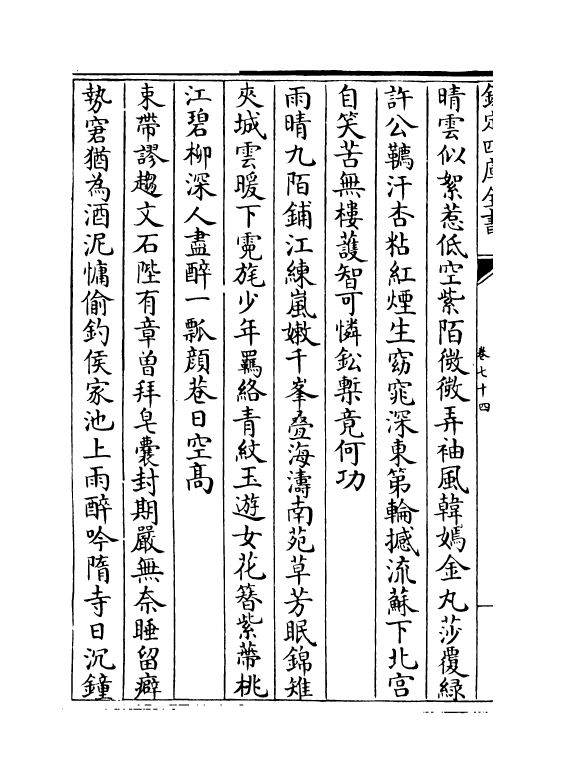 欽定四庫全書
卷七十四
晴雲似絮惹低空紫陌微微弄袖風韓嫣金丸莎覆綠
許公韉汗杏粘紅煙生窈窕深東第輪撼流蘇下北宫
自笑苦無樓護智可憐鉛槧竟何功
雨晴九陌鋪江練嵐嫩千峯疊海濤南苑草芳眠錦雉
夾城雲暖下霓旄少年羈絡青紋玉遊女花簪紫蔕桃
江碧柳深人盡醉一瓢顔巷日空髙
束帶謬趨文石陛有章曽拜皂囊封期嚴無奈睡留癖
勢窘猶為酒泥慵偷釣侯家池上雨醉吟隋寺日沉鐘